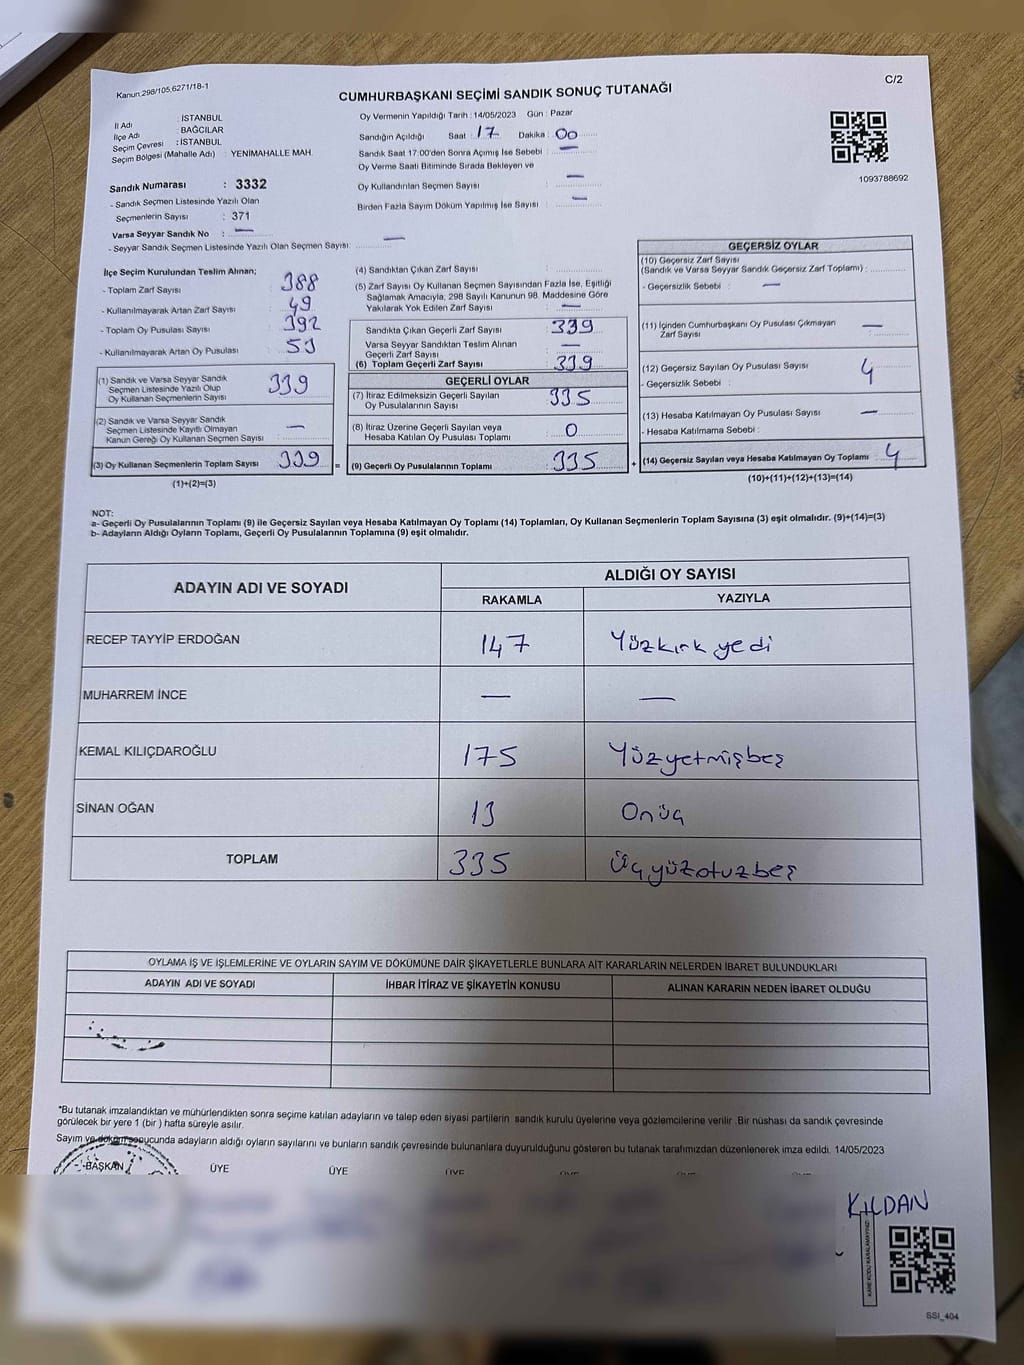 Kanun 298/105,6271/18-1
C/2
CUMHURBAŞKANI SEÇİMİ SANDIK SONUÇ TUTANAĞI
İl Adı : İSTANBUL
İlçe Adı : BAĞCILAR
Seçim Çevresi : İSTANBUL
Seçim Bölgesi (Mahalle Adı) : YENİMAHALLE MAH.
Oy Vermenin Yapıldığı Tarih : 14/05/2023 Gün : Pazar
Sandığın Açıldığı Saat : 17 Dakika : 00
Sandık Saat 17:00'den Sonra Açılmış İse Sebebi : —
Oy Verme Saati Bitiminde Sırada Bekleyen ve
Oy Kullandırılan Seçmen Sayısı : —
Birden Fazla Sayım Döküm Yapılmış İse Sayısı : —
1093788692
Sandık Numarası : 3332
- Sandık Seçmen Listesinde Yazılı Olan
Seçmenlerin Sayısı : 371
Varsa Seyyar Sandık No : —
- Seyyar Sandık Seçmen Listesinde Yazılı Olan Seçmen Sayısı: —
İlçe Seçim Kurulundan Teslim Alınan;
- Toplam Zarf Sayısı : 388
- Kullanılmayarak Artan Zarf Sayısı : 49
- Toplam Oy Pusulası Sayısı : 392
- Kullanılmayarak Artan Oy Pusulası : 53
(1) Sandık ve Varsa Seyyar Sandık
Seçmen Listesinde Yazılı Olup
Oy Kullanan Seçmenlerin Sayısı : 339
(2) Sandık ve Varsa Seyyar Sandık
Seçmen Listesinde Kayıtlı Olmayan
Kanun Gereği Oy Kullanan Seçmen Sayısı : —
(3) Oy Kullanan Seçmenlerin Toplam Sayısı : 339 =
(1)+(2)=(3)
(4) Sandıktan Çıkan Zarf Sayısı :
(5) Zarf Sayısı Oy Kullanan Seçmen Sayısından Fazla İse, Eşitliği
Sağlamak Amacıyla, 298 Sayılı Kanunun 98. Maddesine Göre
Yakılarak Yok Edilen Zarf Sayısı : —
Sandıkta Çıkan Geçerli Zarf Sayısı : 339
Varsa Seyyar Sandıktan Teslim Alınan
Geçerli Zarf Sayısı : —
(6) Toplam Geçerli Zarf Sayısı : 339
GEÇERLİ OYLAR
(7) İtiraz Edilmeksizin Geçerli Sayılan
Oy Pusulalarının Sayısı : 335
(8) İtiraz Üzerine Geçerli Sayılan veya
Hesaba Katılan Oy Pusulası Toplamı : 0
(9) Geçerli Oy Pusulalarının Toplamı : 335 +
GEÇERSİZ OYLAR
(10) Geçersiz Zarf Sayısı
(Sandık ve Varsa Seyyar Sandık Geçersiz Zarf Toplamı) :
- Geçersizlik Sebebi : —
(11) İçinden Cumhurbaşkanı Oy Pusulası Çıkmayan
Zarf Sayısı : —
(12) Geçersiz Sayılan Oy Pusulası Sayısı : 4
- Geçersizlik Sebebi :
(13) Hesaba Katılmayan Oy Pusulası Sayısı : —
- Hesaba Katılmama Sebebi :
(14) Geçersiz Sayılan veya Hesaba Katılmayan Oy Toplamı : 4
(10)+(11)+(12)+(13)=(14)
NOT:
a- Geçerli Oy Pusulalarının Toplamı (9) ile Geçersiz Sayılan veya Hesaba Katılmayan Oy Toplamı (14) Toplamları, Oy Kullanan Seçmenlerin Toplam Sayısına (3) eşit olmalıdır. (9)+(14)=(3)
b- Adayların Aldığı Oyların Toplamı, Geçerli Oy Pusulalarının Toplamına (9) eşit olmalıdır.
ADAYIN ADI VE SOYADI
ALDIĞI OY SAYISI
RAKAMLA YAZIYLA
RECEP TAYYİP ERDOĞAN 147 Yüzkırk yedi
MUHARREM İNCE — —
KEMAL KILIÇDAROĞLU 175 Yüzyetmişbeş
SİNAN OĞAN 13 Onüç
TOPLAM 335 Üçyüzotuzbeş
OYLAMA İŞ VE İŞLEMLERİNE VE OYLARIN SAYIM VE DÖKÜMÜNE DAİR ŞİKAYETLERLE BUNLARA AİT KARARLARIN NELERDEN İBARET BULUNDUKLARI
ADAYIN ADI VE SOYADI İHBAR İTİRAZ VE ŞİKAYETİN KONUSU ALINAN KARARIN NEDEN İBARET OLDUĞU
*Bu tutanak imzalandıktan ve mühürlendikten sonra seçime katılan adayların ve talep eden siyasi partilerin sandık kurulu üyelerine veya gözlemcilerine verilir .Bir nüshası da sandık çevresinde
görülecek bir yere 1 (bir ) hafta süreyle asılır.
Sayım ve döküm sonucunda adayların aldığı oyların sayılarını ve bunların sandık çevresinde bulunanlara duyurulduğunu gösteren bu tutanak tarafımızdan düzenlenerek imza edildi. 14/05/2023
BAŞKAN ÜYE ÜYE ÜYE
KILDAN
KARE KODU KARALAMAYINIZ!
SSI_404